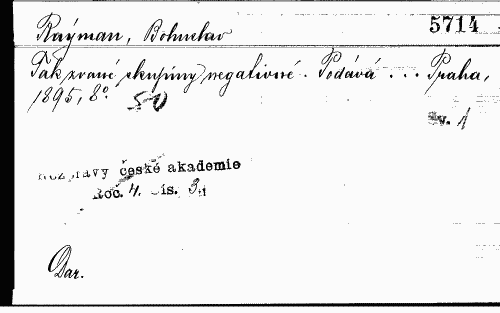 Rayman, Bohuslav
5714
Tak zvané skupiny negativné. Podává ... Praha,
1895, 8°.
50
Sv. 1
Rozpravy české akademie
Roč. 4. čís. 3.
Dar.